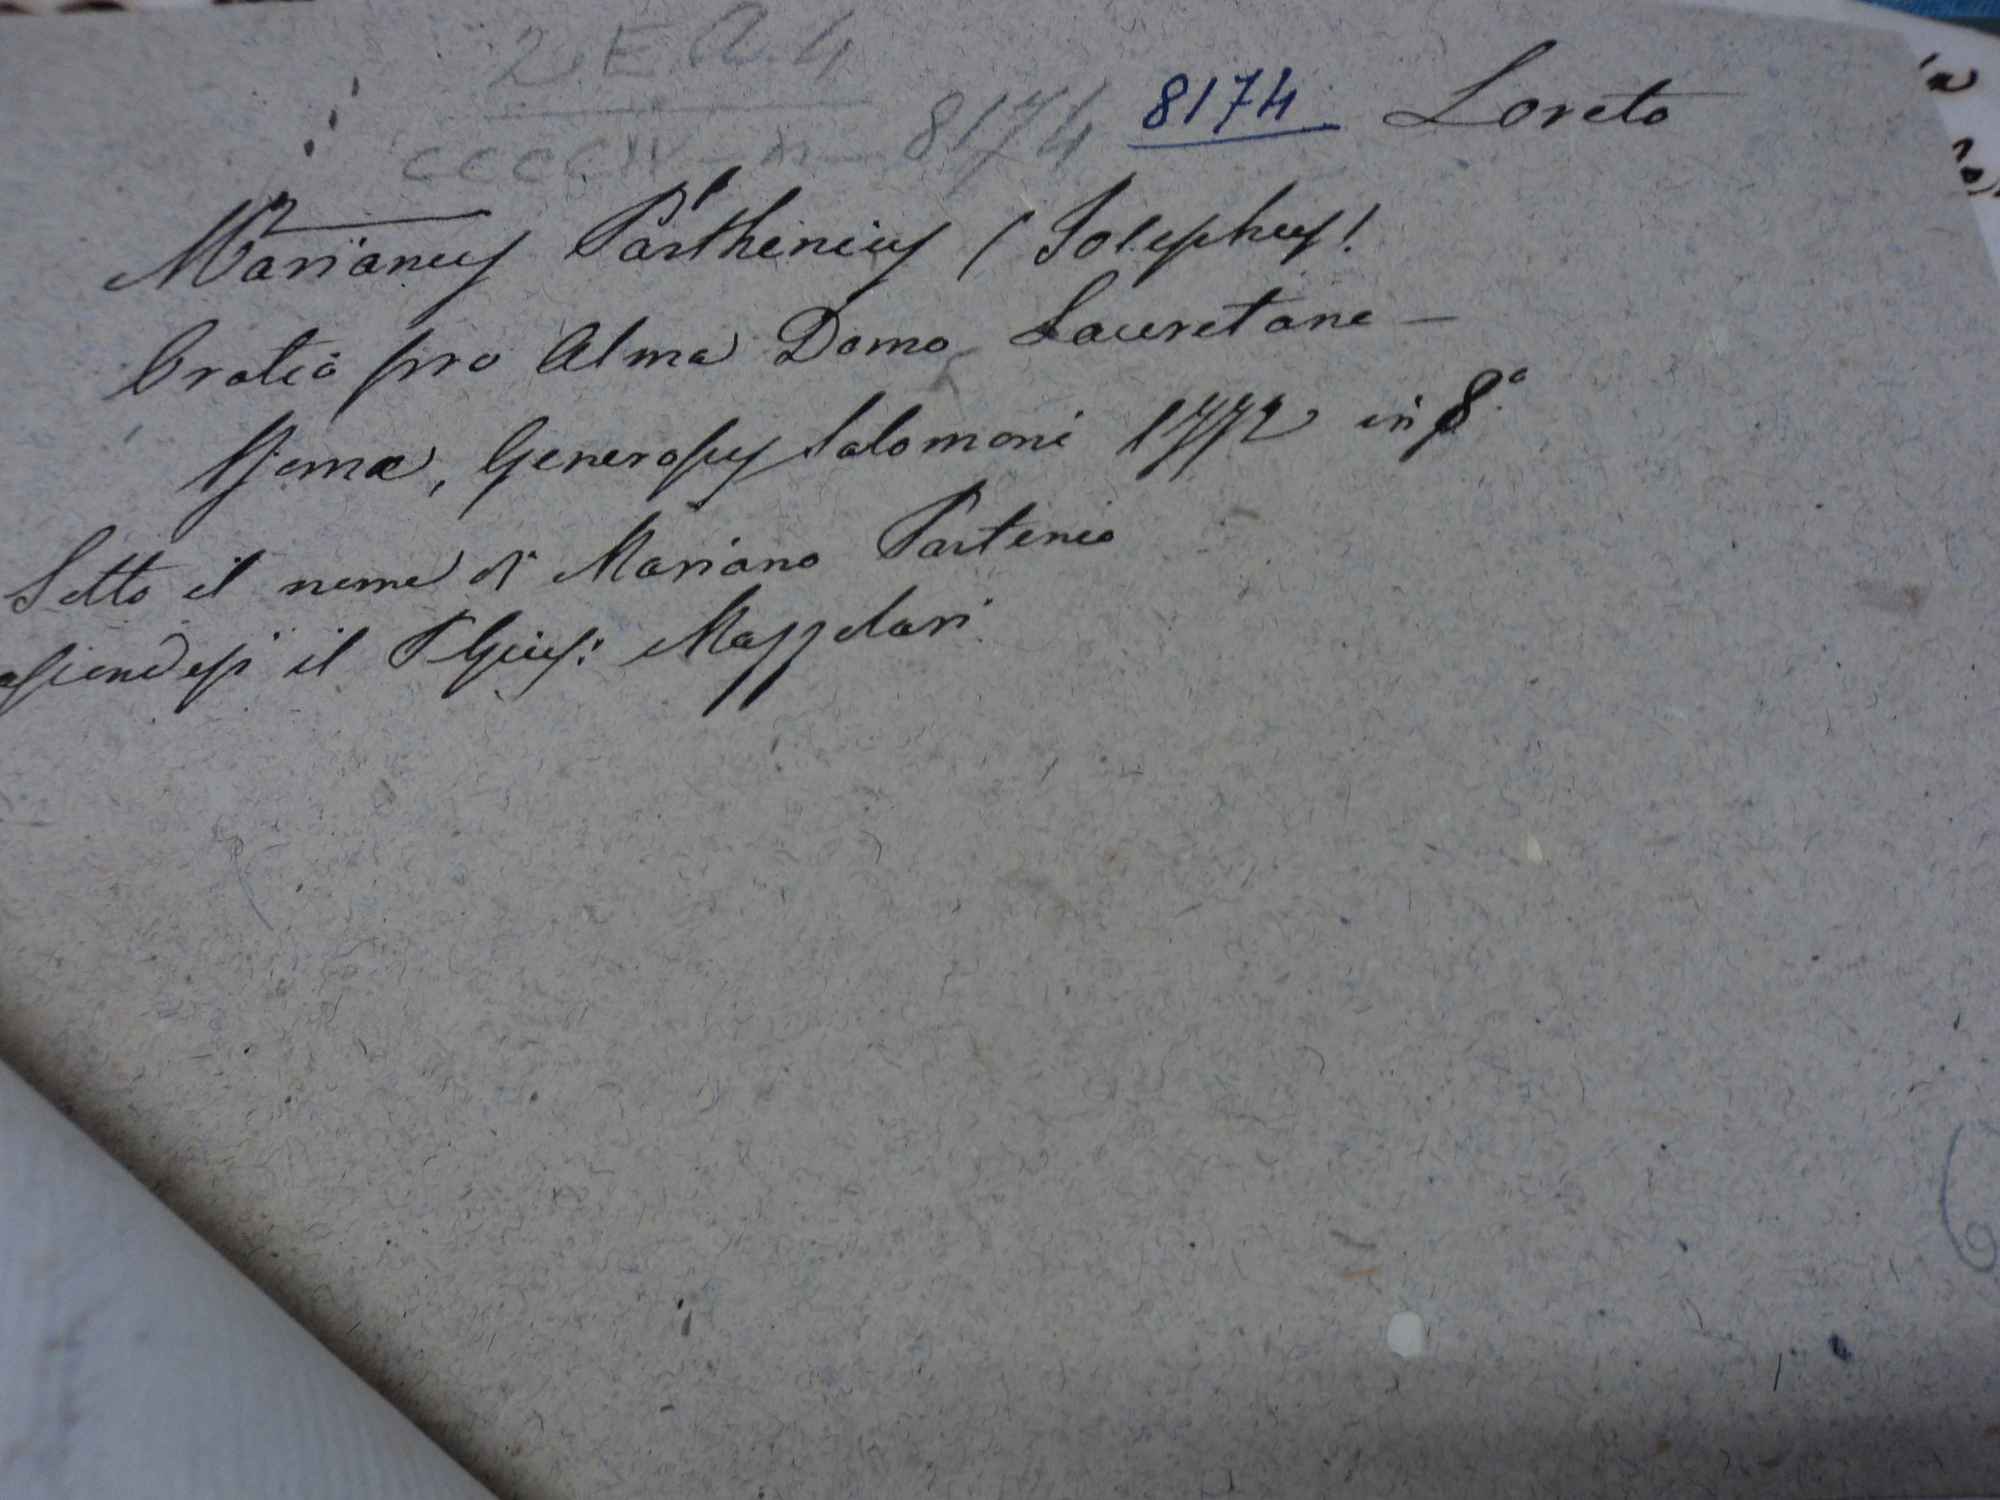 2.E.a.4
8174 8174 Loreto
Marianus Parthenius (Josephus)
Oratio pro Alma Domo Lauretane —
Romæ, Generosus Salomoni 1772 in 8.°
Sotto il nome di Mariano Partenio
ascondesi il P Gius: Mazzolari